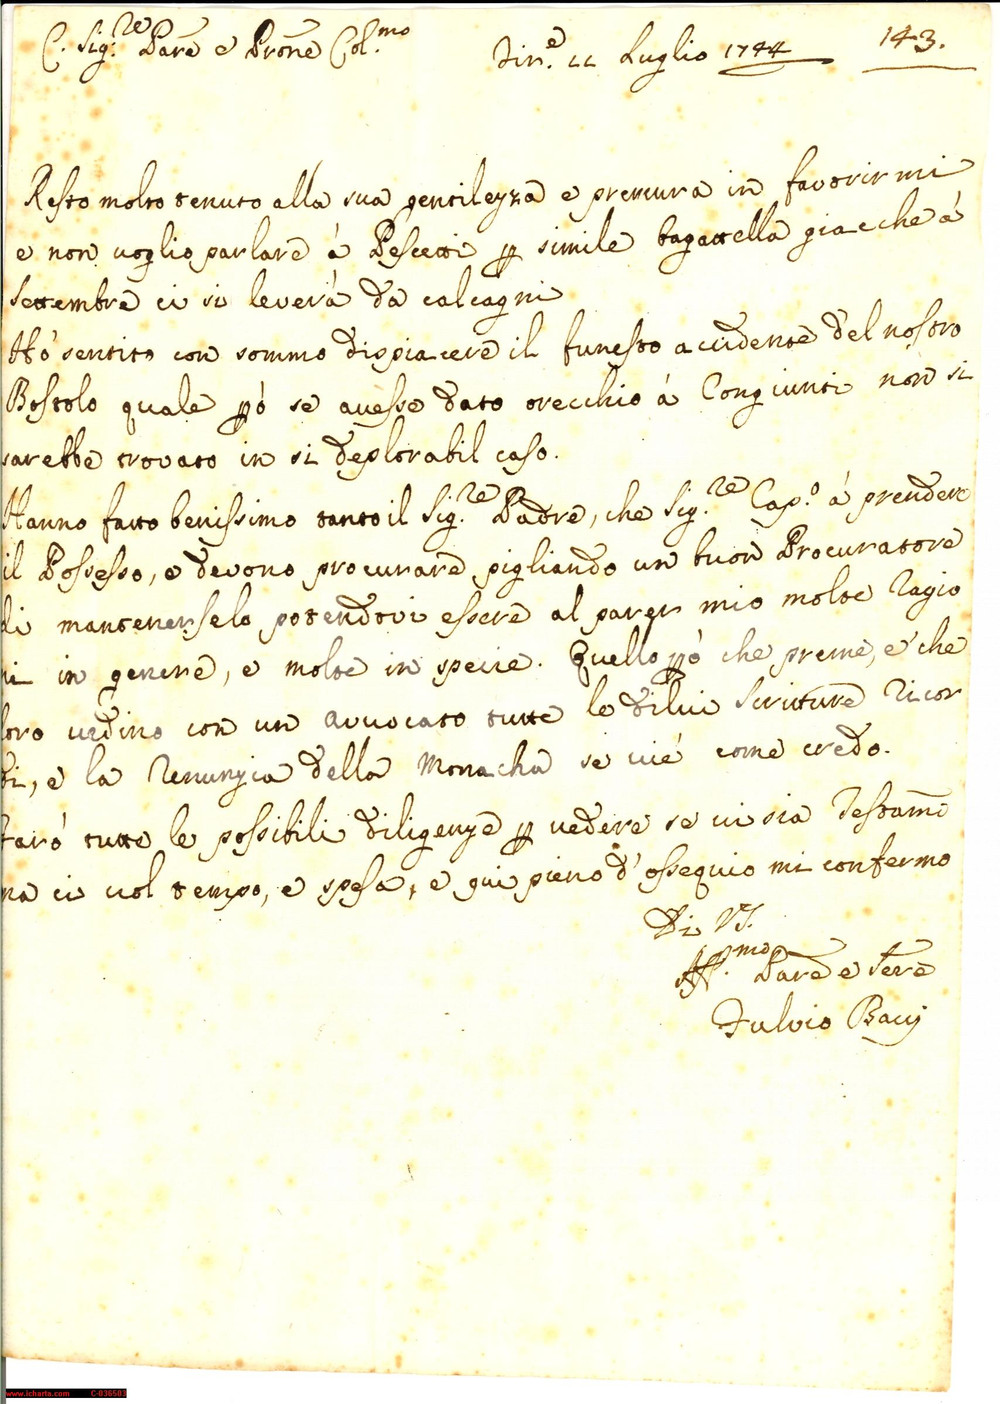 C. Sig.re Pare e Prone Col.mo
Fir.e 11 Luglio 1744
143.
Resto molto tenuto alla sua gentilezza e premura in favorirmi
e non voglio parlare á Pescetti p simile bagattella giacche á
Settembre ci si leverá da calcagni
Hó sentito con sommo dispiacere il funesto accidente del nostro
Bostolo quale pó se avesse dato orecchio á Congiunti non si
sarebbe trovato in si deplorabil caso.
Hanno fatto benissimo tanto il Sig.re Padre, che Sig.re Cap.o á prendere
il Possesso, e devono procurare pigliando un buon Procuratore
di mantenerselo potendovi essere al parer mio molte Ragio
ni in genere, e molte in specie. Quello pó che preme, é che
loro vedino con un Avvocato tutte le di lui Scritture Ricor
di, e la Renunzia della Monacha se vi é come credo.
Faró tutte le possibili diligenze p vedere se vi sia Testam̄e
ma ci vol tempo, e spesa, e qui pieno d'ossequio mi confermo
Di VS.
Aff.mo Pare e Sere
Fulvio Bacij
www.icharta.com C-036503